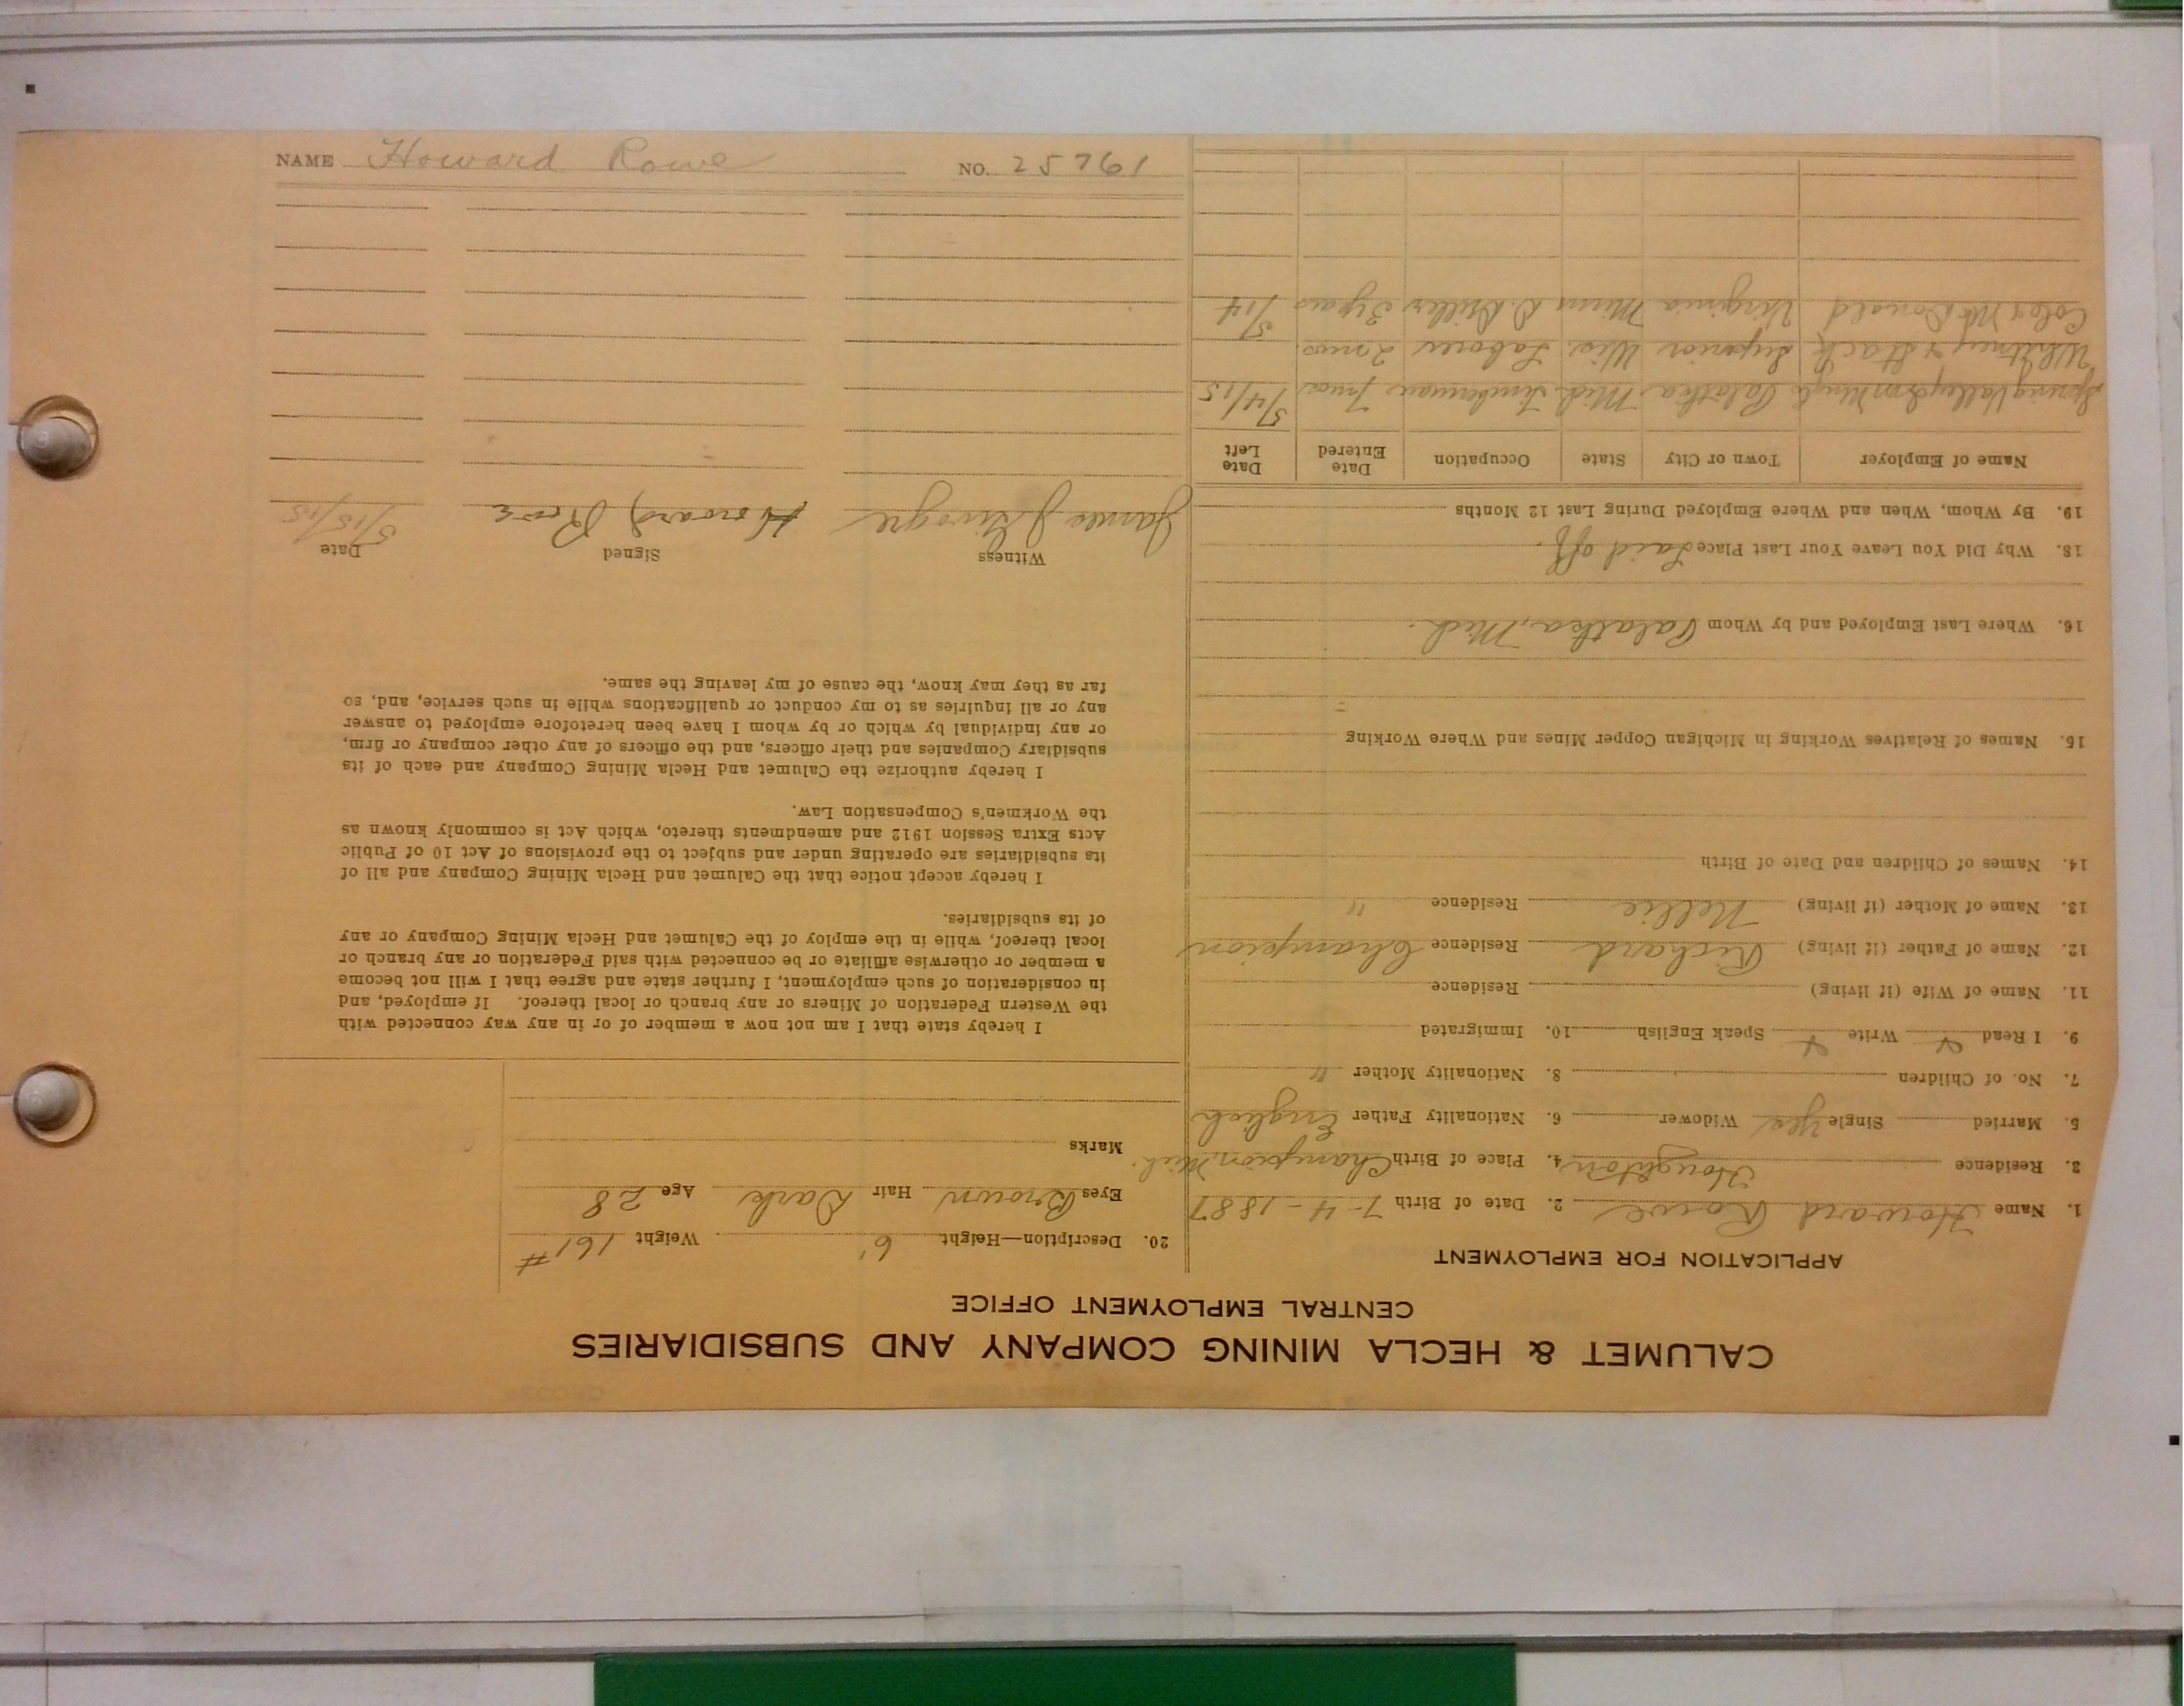 CALUMET & HECLA MINING COMPANY AND SUBSIDIARIES
CENTRAL EMPLOYMENT OFFICE
APPLICATION FOR EMPLOYMENT
1. Name Howard Rowe 2. Date of Birth 7-4-1887
3. Residence Houghton 4. Place of Birth Champion, Mich.
5. Married Single yes Widower 6. Nationality Father English
7. No. of Children 8. Nationality Mother "
9. I Read Write Speak English 10. Immigrated
11. Name of Wife (if living) Residence
12. Name of Father (if living) Richard Residence Champion
13. Name of Mother (if living) Nellie Residence "
14. Names of Children and Date of Birth
15. Names of Relatives Working in Michigan Copper Mines and Where Working
16. Where Last Employed and by Whom Palatka, Mich.
18. Why Did You Leave Your Last Place Laid off.
19. By Whom, When and Where Employed During Last 12 Months
Name of Employer Town or City State Occupation Date Entered Date Left
Spring Valley Iron Palatka Mich. Timberman 7 mos 5/4/15
Whitney & Stack Superior Wis. Laborer 2 mos.
Coles McDonald Virginia Minn D. Driller 3 years 5/14
20. Description—Height 6' Weight 161 #
Eyes Brown Hair Dark Age 28
Marks
I hereby state that I am not now a member of or in any way connected with
the Western Federation of Miners or any branch or local thereof. If employed, and
in consideration of such employment, I further state and agree that I will not become
a member or otherwise affiliate or be connected with said Federation or any branch or
local thereof, while in the employ of the Calumet and Hecla Mining Company or any
of its subsidiaries.
I hereby accept notice that the Calumet and Hecla Mining Company and all of
its subsidiaries are operating under and subject to the provisions of Act 10 of Public
Acts Extra Session 1912 and amendments thereto, which Act is commonly known as
the Workmen's Compensation Law.
I hereby authorize the Calumet and Hecla Mining Company and each of its
subsidiary Companies and their officers, and the officers of any other company or firm,
or any individual by which or by whom I have been heretofore employed to answer
any or all inquiries as to my conduct or qualifications while in such service, and, so
far as they may know, the cause of my leaving the same.
Witness Signed Date
James J. Howard Rowe 5/15/15
NAME Howard Rowe NO. 25761